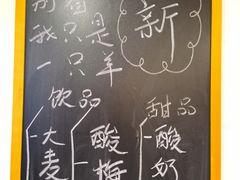 我只是
一只羊
新
饮品
大麦
酸梅
甜品
酸奶